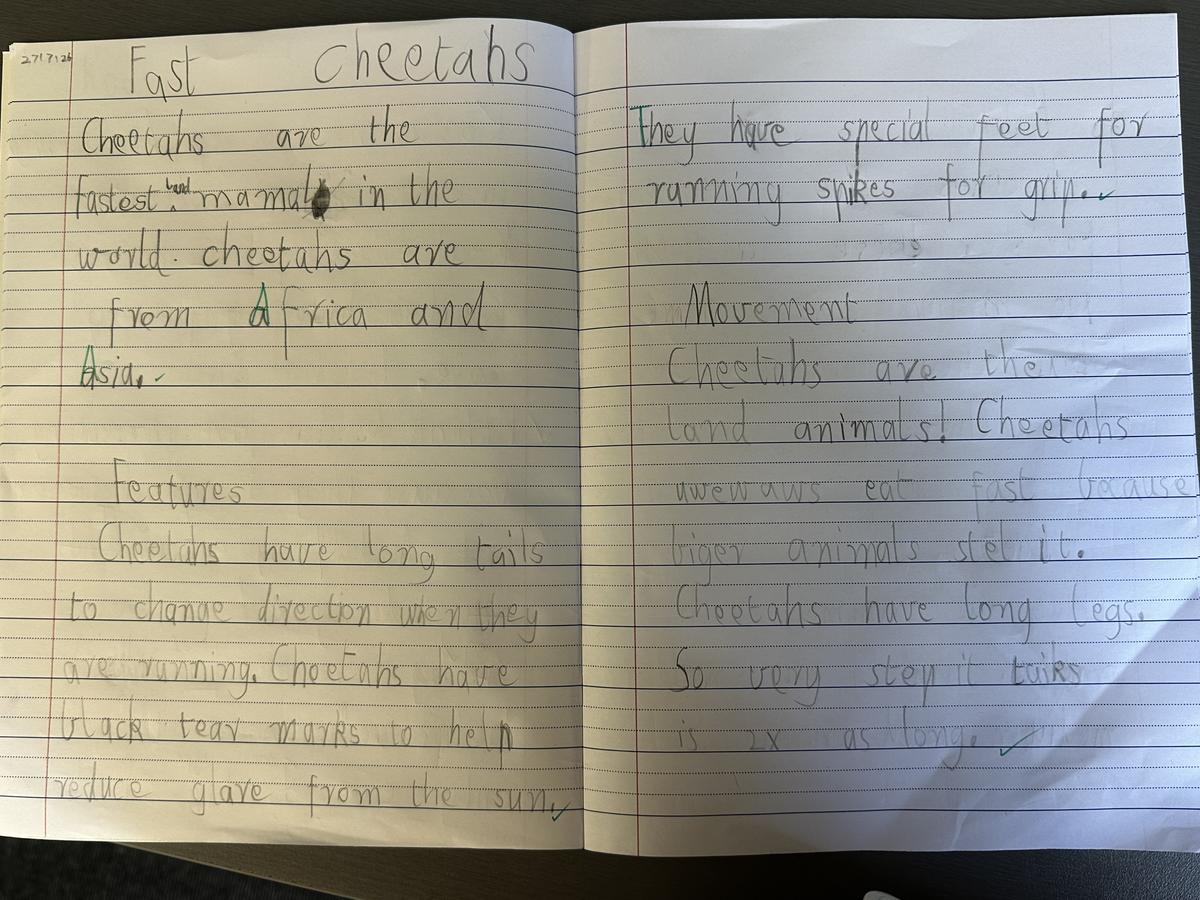 27/7/26
Fast Cheetahs
Cheetahs are the
fastest land mamal in the
world. cheetahs are
from Africa and
Asia.
Features
Cheetahs have long tails
to change direction when they
are running. Cheetahs have
black tear marks to help
reduce glare from the sun.
They have special feet for
running spikes for grip.
Movement
Cheetahs are the
land animals! Cheetahs
uwewaws eat fast beause
biger animals stel it.
Cheetahs have long legs.
So very step it taiks
is 2x as long.